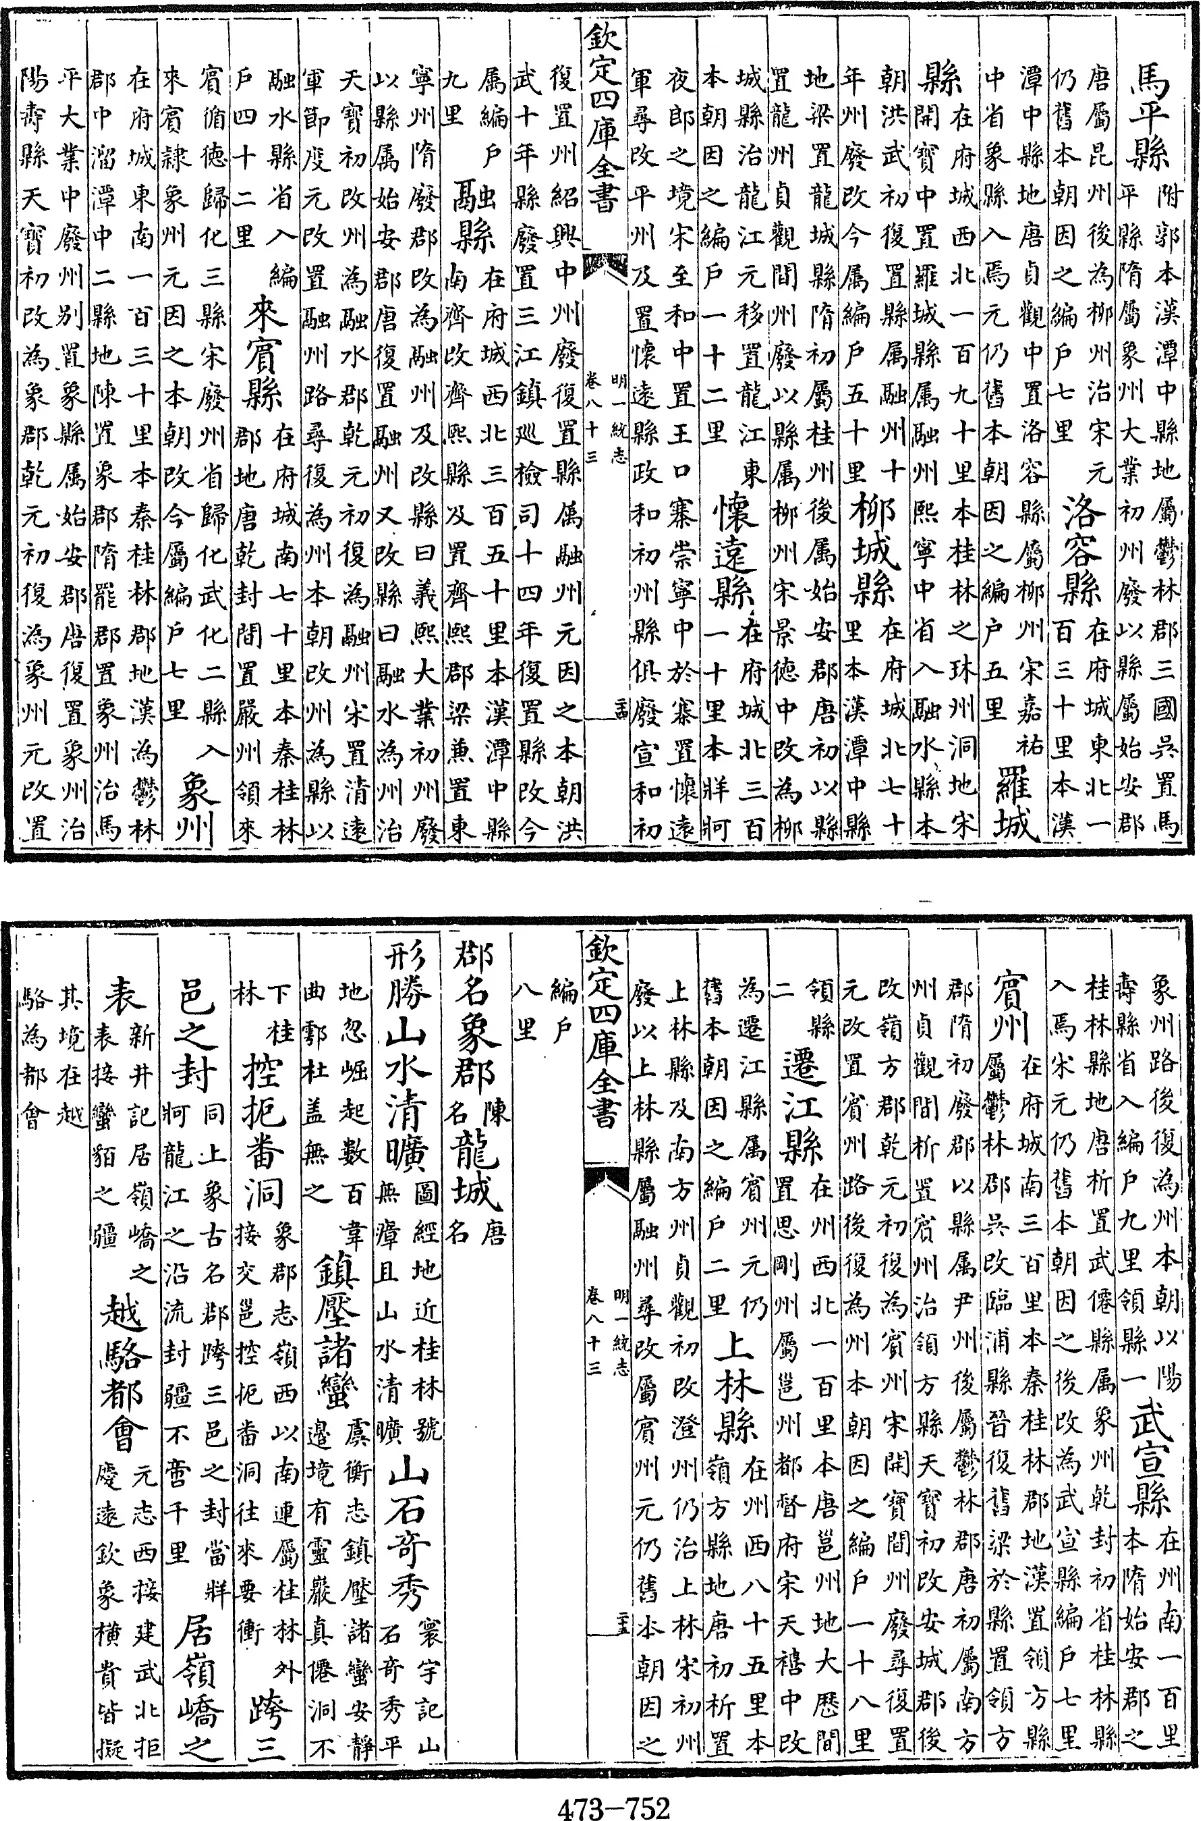 馬平縣 附郭本漢潭中縣地屬鬱林郡三國吳置馬
平縣隋屬象州大業初州廢以縣屬始安郡
唐屬昆州後為柳州治宋元
仍舊本朝因之編戶七里
洛容縣 在府城東北一
百三十里本漢
潭中縣地唐貞觀中置洛容縣屬柳州宋嘉祐
中省象縣入焉元仍舊本朝因之編戶五里
羅城
縣 在府城西北一百九十里本桂林之珠州洞地宋
開寶中置羅城縣属融州熙寧中省入融水縣本
朝洪武初復置縣属融州十
年州廢改今属編戶五十里
柳城縣 在府城北七十
里本漢潭中縣
地梁置龍城縣隋初屬桂州後属始安郡唐初以縣
置龍州貞觀間州廢以縣属柳州宋景德中改為柳
城縣治龍江元移置龍江東
本朝因之編戶一十二里
懷遠縣 在府城北三百
一十里本牂牁
夜郎之境宋至和中置王口寨崇寧中於寨置懷遠
軍尋改平州及置懷遠縣政和初州縣俱廢宣和初
欽定四庫全書
明一統志
卷八十三
二十四
復置州紹興中州廢復置縣属融州元因之本朝洪
武十年縣廢置三江鎮巡檢司十四年復置縣改今
属編戶
九里
融縣 在府城西北三百五十里本漢潭中縣
南齊改齊熙縣及置齊熙郡梁兼置東
寧州隋廢郡改為融州及改縣曰義熙大業初州廢
以縣属始安郡唐復置融州又改縣曰融水為州治
天寶初改州為融水郡乾元初復為融州宋置清遠
軍節度元改置融州路尋復為州本朝改州為縣以
融水縣省入編
戶四十二里
來賓縣 在府城南七十里本秦桂林
郡地唐乾封間置嚴州領來
賓循德歸化三縣宋廢州省歸化武化二縣入
來賓隸象州元因之本朝改今屬編戶七里
象州
在府城東南一百三十里本秦桂林郡地漢為鬱林
郡中溜潭中二縣地陳置象郡隋罷郡置象州治馬
平大業中廢州別置象縣属始安郡唐復置象州治
陽壽縣天寶初改為象郡乾元初復為象州元改置
象州路後復為州本朝以陽
壽縣省入編戶九里領縣一
武宣縣 在州南一百里
本隋始安郡之
桂林縣地唐析置武僊縣属象州乾封初省桂林縣
入焉宋元仍舊本朝因之後改為武宣縣編戶七里
賓州 在府城南三百里本秦桂林郡地漢置領方縣
屬鬱林郡吳改臨浦縣晉復舊梁於縣置領方
郡隋初廢郡以縣属尹州後屬鬱林郡唐初屬南方
州貞觀間析置賓州治領方縣天寶初改安城郡後
改嶺方郡乾元初復為賓州宋開寶間州廢尋復置
元改置賓州路後復為州本朝因之編戶一十八里
領縣
二
遷江縣 在州西北一百里本唐邕州地大歷間
置思剛州屬邕州都督府宋天禧中改
為遷江縣属賓州元仍
舊本朝因之編戶二里
上林縣 在州西八十五里本
嶺方縣地唐初析置
上林縣及南方州貞觀初改澄州仍治上林宋初州
廢以上林縣屬融州尋改屬賓州元仍舊本朝因之
欽定四庫全書
明一統志
卷八十三
二十五
編戶
八里
郡名 象郡 陳
名
龍城 唐
名
形勝 山水清曠 圖經地近桂林號
無瘴且山水清曠
山石奇秀 寰宇記山
石奇秀平
地忽崛起數百韋
曲鄠杜盖無之
鎮壓諸蠻 虞衡志鎮壓諸蠻安静
邉境有靈巖真僊洞不
下桂
林
控扼畨洞 象郡志嶺西以南連屬桂林外
接交邕控扼畨洞往來要衝
跨三
邑之封 同上象古名郡跨三邑之封當牂
牁龍江之沿流封疆不啻千里
居嶺嶠之
表 新井記居嶺嶠之
表接蠻貊之疆
越駱都會 元志西接建武北拒
慶遠欽象橫貴皆擬
其境在越
駱為都會
473-752